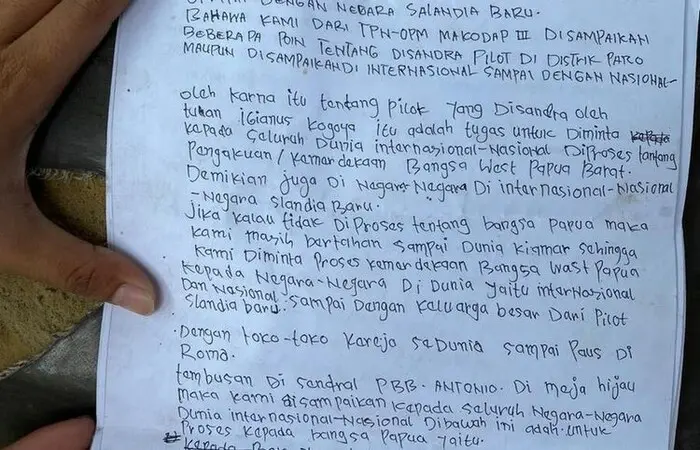 DENGAN NEGARA SALANDIA BARU.
BAHAWA KAMI DARI TPN-OPM MAKODAP III DISAMPAIKAN
BEBERAPA POIN TENTANG DISANDRA PILOT DI DISTRIK PARO
MAUPUN DISAMPAIKANDI INTERNASIONAL SAMPAI DENGAN NASIONAL-
oleh karna itu tentang pilot yang Disandra oleh
tuhan IGianus Kogoya itu adalah tugas untuk Diminta
kepada Seluruh Dunia internasional-Nasional DiProses tantang
Pengakuan/kemardekaan Bangsa West Papua Barat.
Demikian juga Di Negara-Negara Di internasional-Nasional
-Negara Slandia Baru.
Jika kalau tidak DiProses tentang bangsa papua maka
kami masih bertahan sampai Dunia kiamar sehingga
kami Diminta Proses kemardekaan Bangsa Wast Papua
kepada Negara-Negara Di Dunia yaitu internasional
Dan Nasional. sampai Dengan keluarga besar Dari Pilot
Slandia baru.
Dengan toko-toko kareja seDunia sampai Paus Di
Roma.
tembusan Di sandral PBB. ANTONIO. Di meja hijau
maka kami disampaikan kepada seluruh Negara-Negara
Dunia internasional-Nasional Dibawah ini adah untuk
Proses kepada bangsa Papua yaitu.